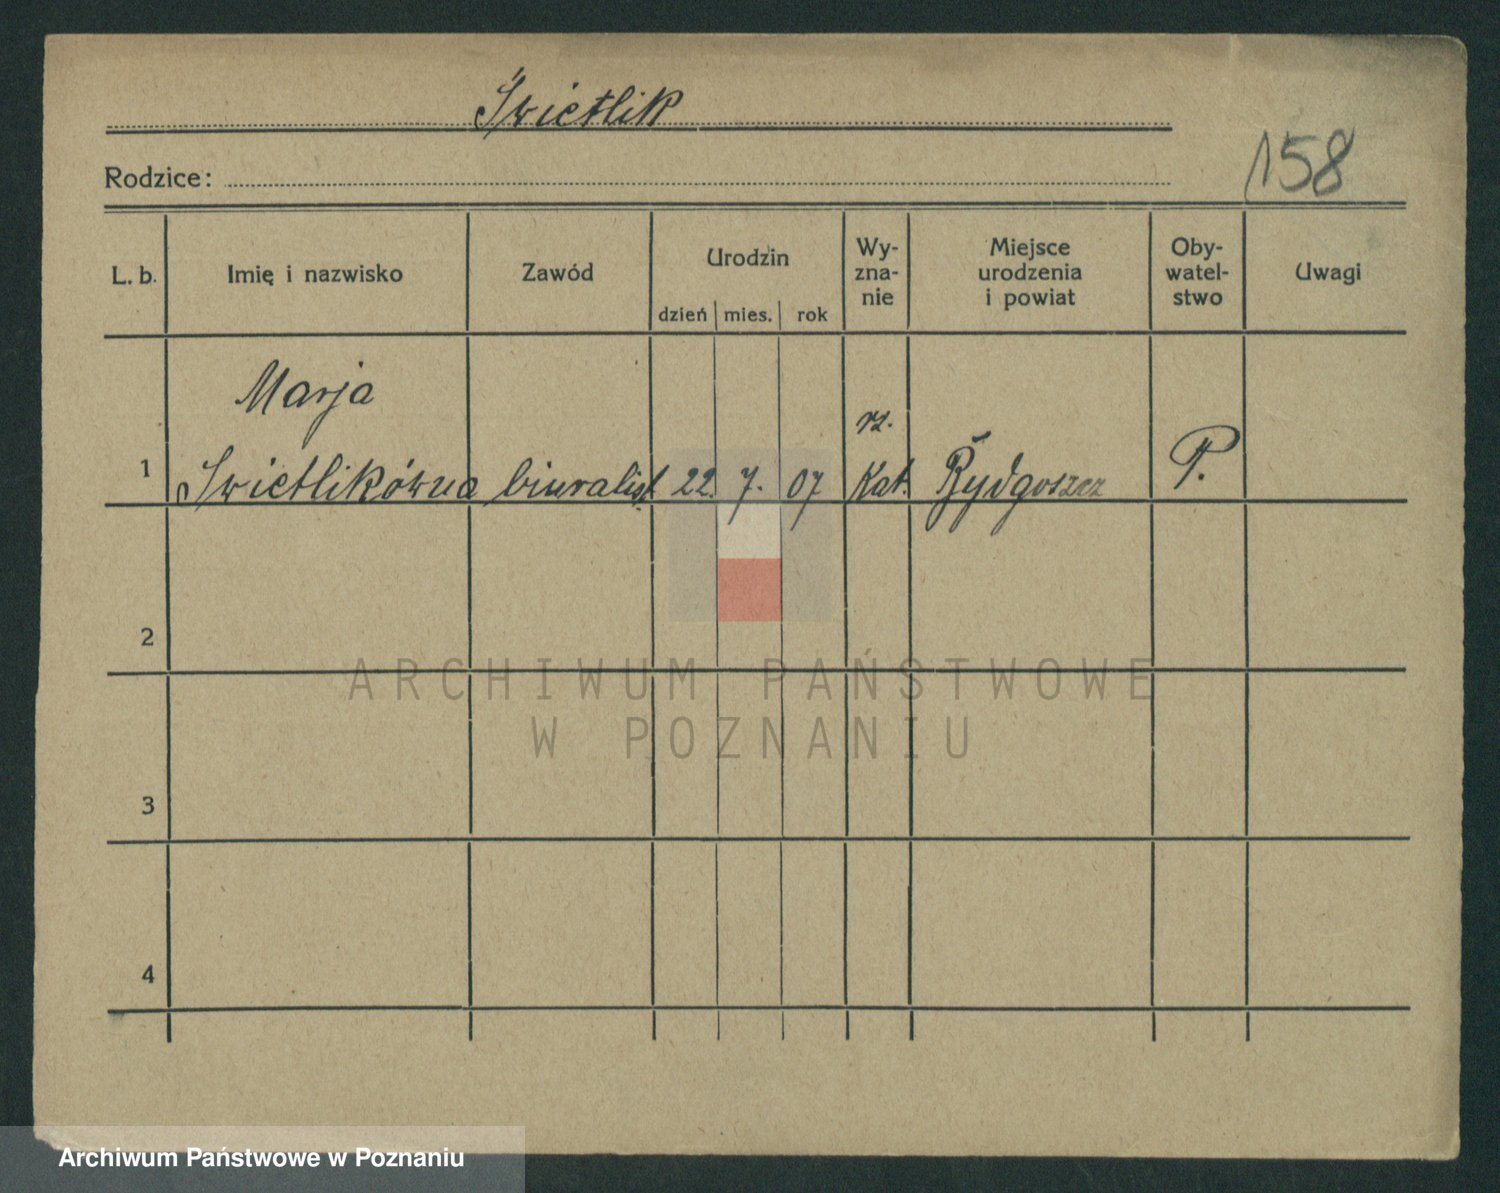 Świetlik
158
Rodzice:
L. b. Imię i nazwisko Zawód Urodzin dzień mies. rok Wy-zna-nie Miejsce urodzenia i powiat Oby-watel-stwo Uwagi
Marja rz.
1 Świetlikówna biuralist. 22. 7. 07 Kat. Bydgoszcz P.
2
ARCHIWUM PAŃSTWOWE
W POZNANIU
3
4
Archiwum Państwowe w Poznaniu